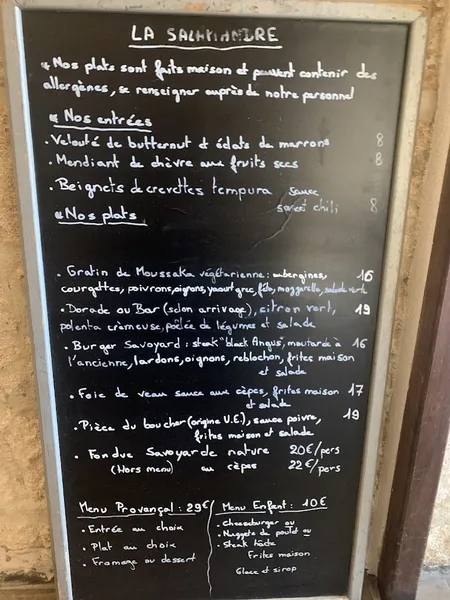 LA SALAMANDRE
* Nos plats sont faits maison et peuvent contenir des
allergènes, se renseigner auprès de notre personnel
* Nos entrées
. Velouté de butternut et éclats de marrons 8
. Mendiant de chèvre aux fruits secs 8
. Beignets de crevettes tempura sauce
sweet chili 8
* Nos plats
. Gratin de Moussaka végétarienne : aubergines, 16
courgettes, poivrons, oignons, yaourt grec, féta, mozzarella, salade verte
. Dorade ou Bar (selon arrivage), citron vert, 19
polenta crèmeuse, poêlée de légumes et salade
. Burger Savoyard : steak "black Angus", moutarde à 16
l'ancienne, lardons, oignons, reblochon, frites maison
et salade
. Foie de veau sauce aux cèpes, frites maison 17
et salade
. Pièce du boucher (origine U.E.), sauce poivre, 19
frites maison et salade
. Fondue Savoyarde nature 20€/pers
(Hors menu) ou cèpes 22€/pers
Menu Provençal : 29€
. Entrée au choix
. Plat au choix
. Fromage ou dessert
Menu Enfant : 10€
. Cheeseburger ou
. Nuggets de poulet ou
. Steak haché
Frites maison
Glace et sirop